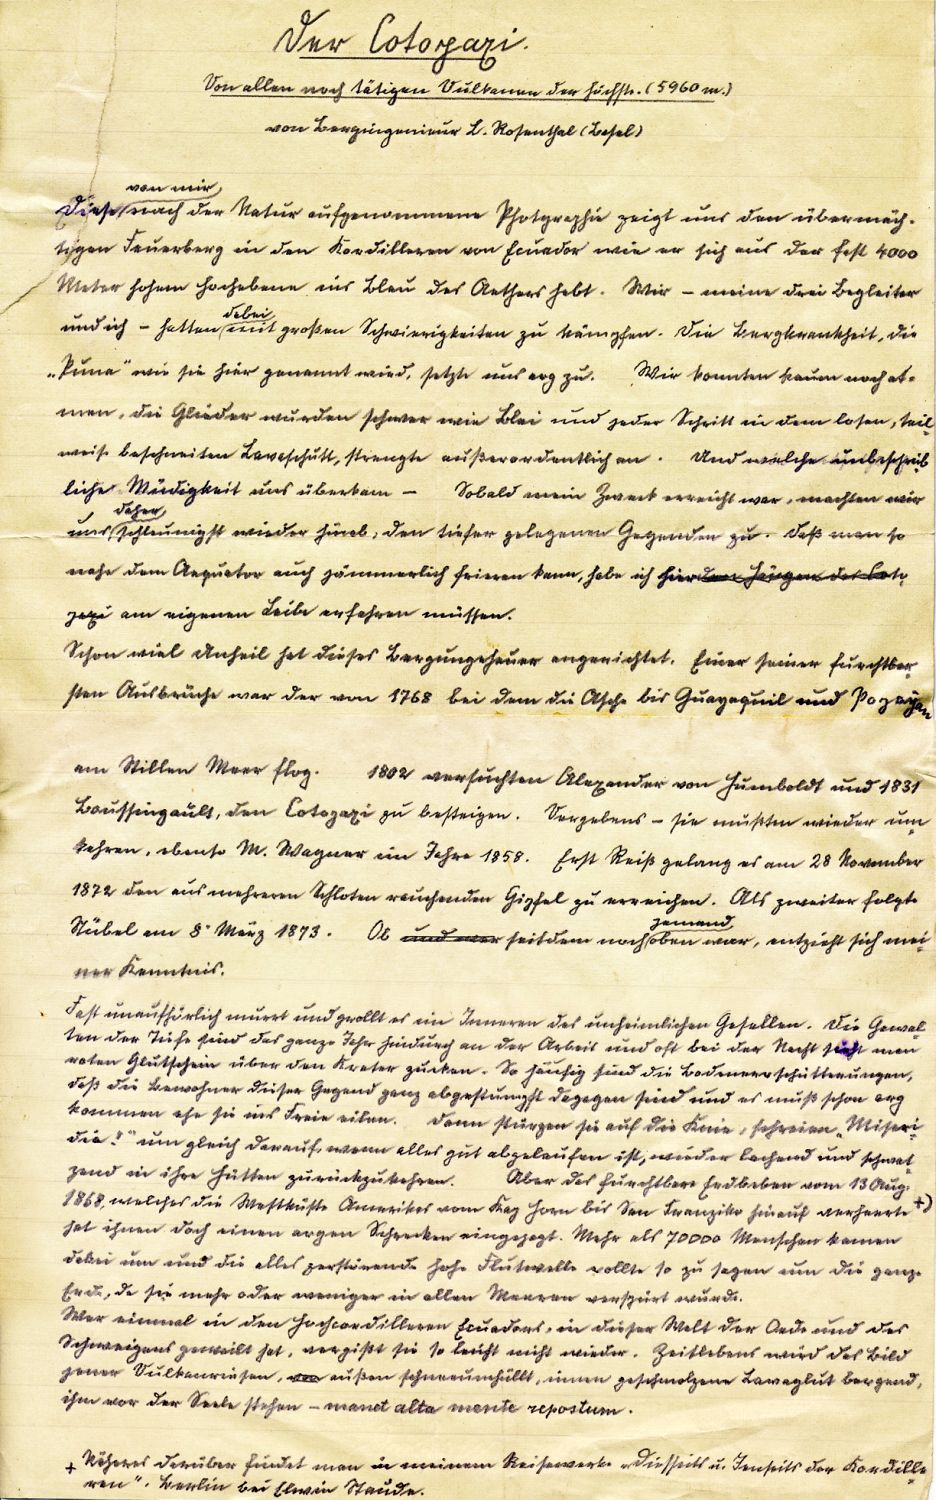 Der Cotopaxi.
Von allen noch tätigen Vulkanen der höchste. (5960 m.)
von Bergingenieur L. Rosenthal (Basel)
von mir
Diese nach der Natur aufgenommene Photgraphie zeigt uns den übermäch-
tigen Feuerberg in den Kordilleren von Ecuador wie er sich aus der fast 4000
Meter hohen Hochebene ins Blau des Aethers hebt. Wir – meine drei Begleiter
dabei
und ich – hatten mit großen Schwierigkeiten zu kämpfen. Die Bergkrankheit, die
„Puna" wie sie hier genannt wird, setzte uns arg zu. Wir konnten kaum noch at-
men, die Glieder wurden schwer wie Blei und jeder Schritt in dem losen, teil-
weise beschneiten Lavaschutt, strengte außerordentlich an. Und welche unbeschreib
liche Müdigkeit uns überkam – Sobald mein Zweck erreicht war, machten wir
daher
uns schleunigst wieder hinab, den tiefer gelegenen Gegenden zu. Daß man so
nahe dem Aequator auch jämmerlich frieren kann, habe ich hier den Hängen des Coto-
paxi am eigenen Leibe erfahren müssen.
Schon viel Unheil hat dieses Bergungeheuer angerichtet. Einer seiner furchtbar-
sten Ausbrüche war der von 1768 bei dem die Asche bis Guayaquil und Popayan
am Stillen Meer flog. 1802 versuchten Alexander von Humboldt und 1831
Boussingault, den Cotopaxi zu besteigen. Vergebens – sie mußten wieder um-
kehren, ebenso M. Wagner im Jahre 1858. Erst Reiß gelang es am 28 November
1872 den aus mehreren Schloten rauchenden Gipfel zu erreichen. Als zweiter folgte
Stübel am 8 März 1873. Ob und wer seitdem noch oben war, entzieht sich mei-
jemand
ner Kenntnis.
Fast unaufhörlich murrt und grollt es im Inneren des unheimlichen Gesellen. Die Gewal-
ten der Tiefe sind das ganze Jahr hindurch an der Arbeit und oft bei der Nacht sieht man
roten Glutschein über den Krater zucken. So häufig sind die Bodenerschütterungen,
daß die Bewohner dieser Gegend ganz abgestumpft dagegen sind und es muß schon arg
kommen ehe sie ins Freie eilen. Dann stürzen sie auf die Knie, schreien „Miseri-
die!" um gleich darauf, wenn alles gut abgelaufen ist, wieder lachend und schwat-
zend in ihre Hütten zurückzukehren. Aber das furchtbare Erdbeben vom 13 Aug.
1868, welches die Westküste Amerikas vom Kap Horn bis San Franzisko hinauf verheerte +)
hat ihnen doch einen argen Schrecken eingejagt. Mehr als 70000 Menschen kamen
dabei um und die alles zerstörende hohe Flutwelle rollte so zu sagen um die ganze
Erde, da sie mehr oder weniger in allen Meeren verspürt wurde.
Wer einmal in den Hochcordilleren Ecuadors, in dieser Welt der Oede und des
Schweigens geweilt hat, vergißt sie so leicht nicht wieder. Zeitlebens wird das Bild
jener Vulkanriesen, von außen schneeumhüllt, innen geschmolzene Lavaglut bergend,
ihm vor der Seele stehen – manet alta mente repostum.
+ Näheres darüber findet man in meinem Reisewerk „Diesseits u. Jenseits der Kordille
ren". Berlin bei Elwin Staude.